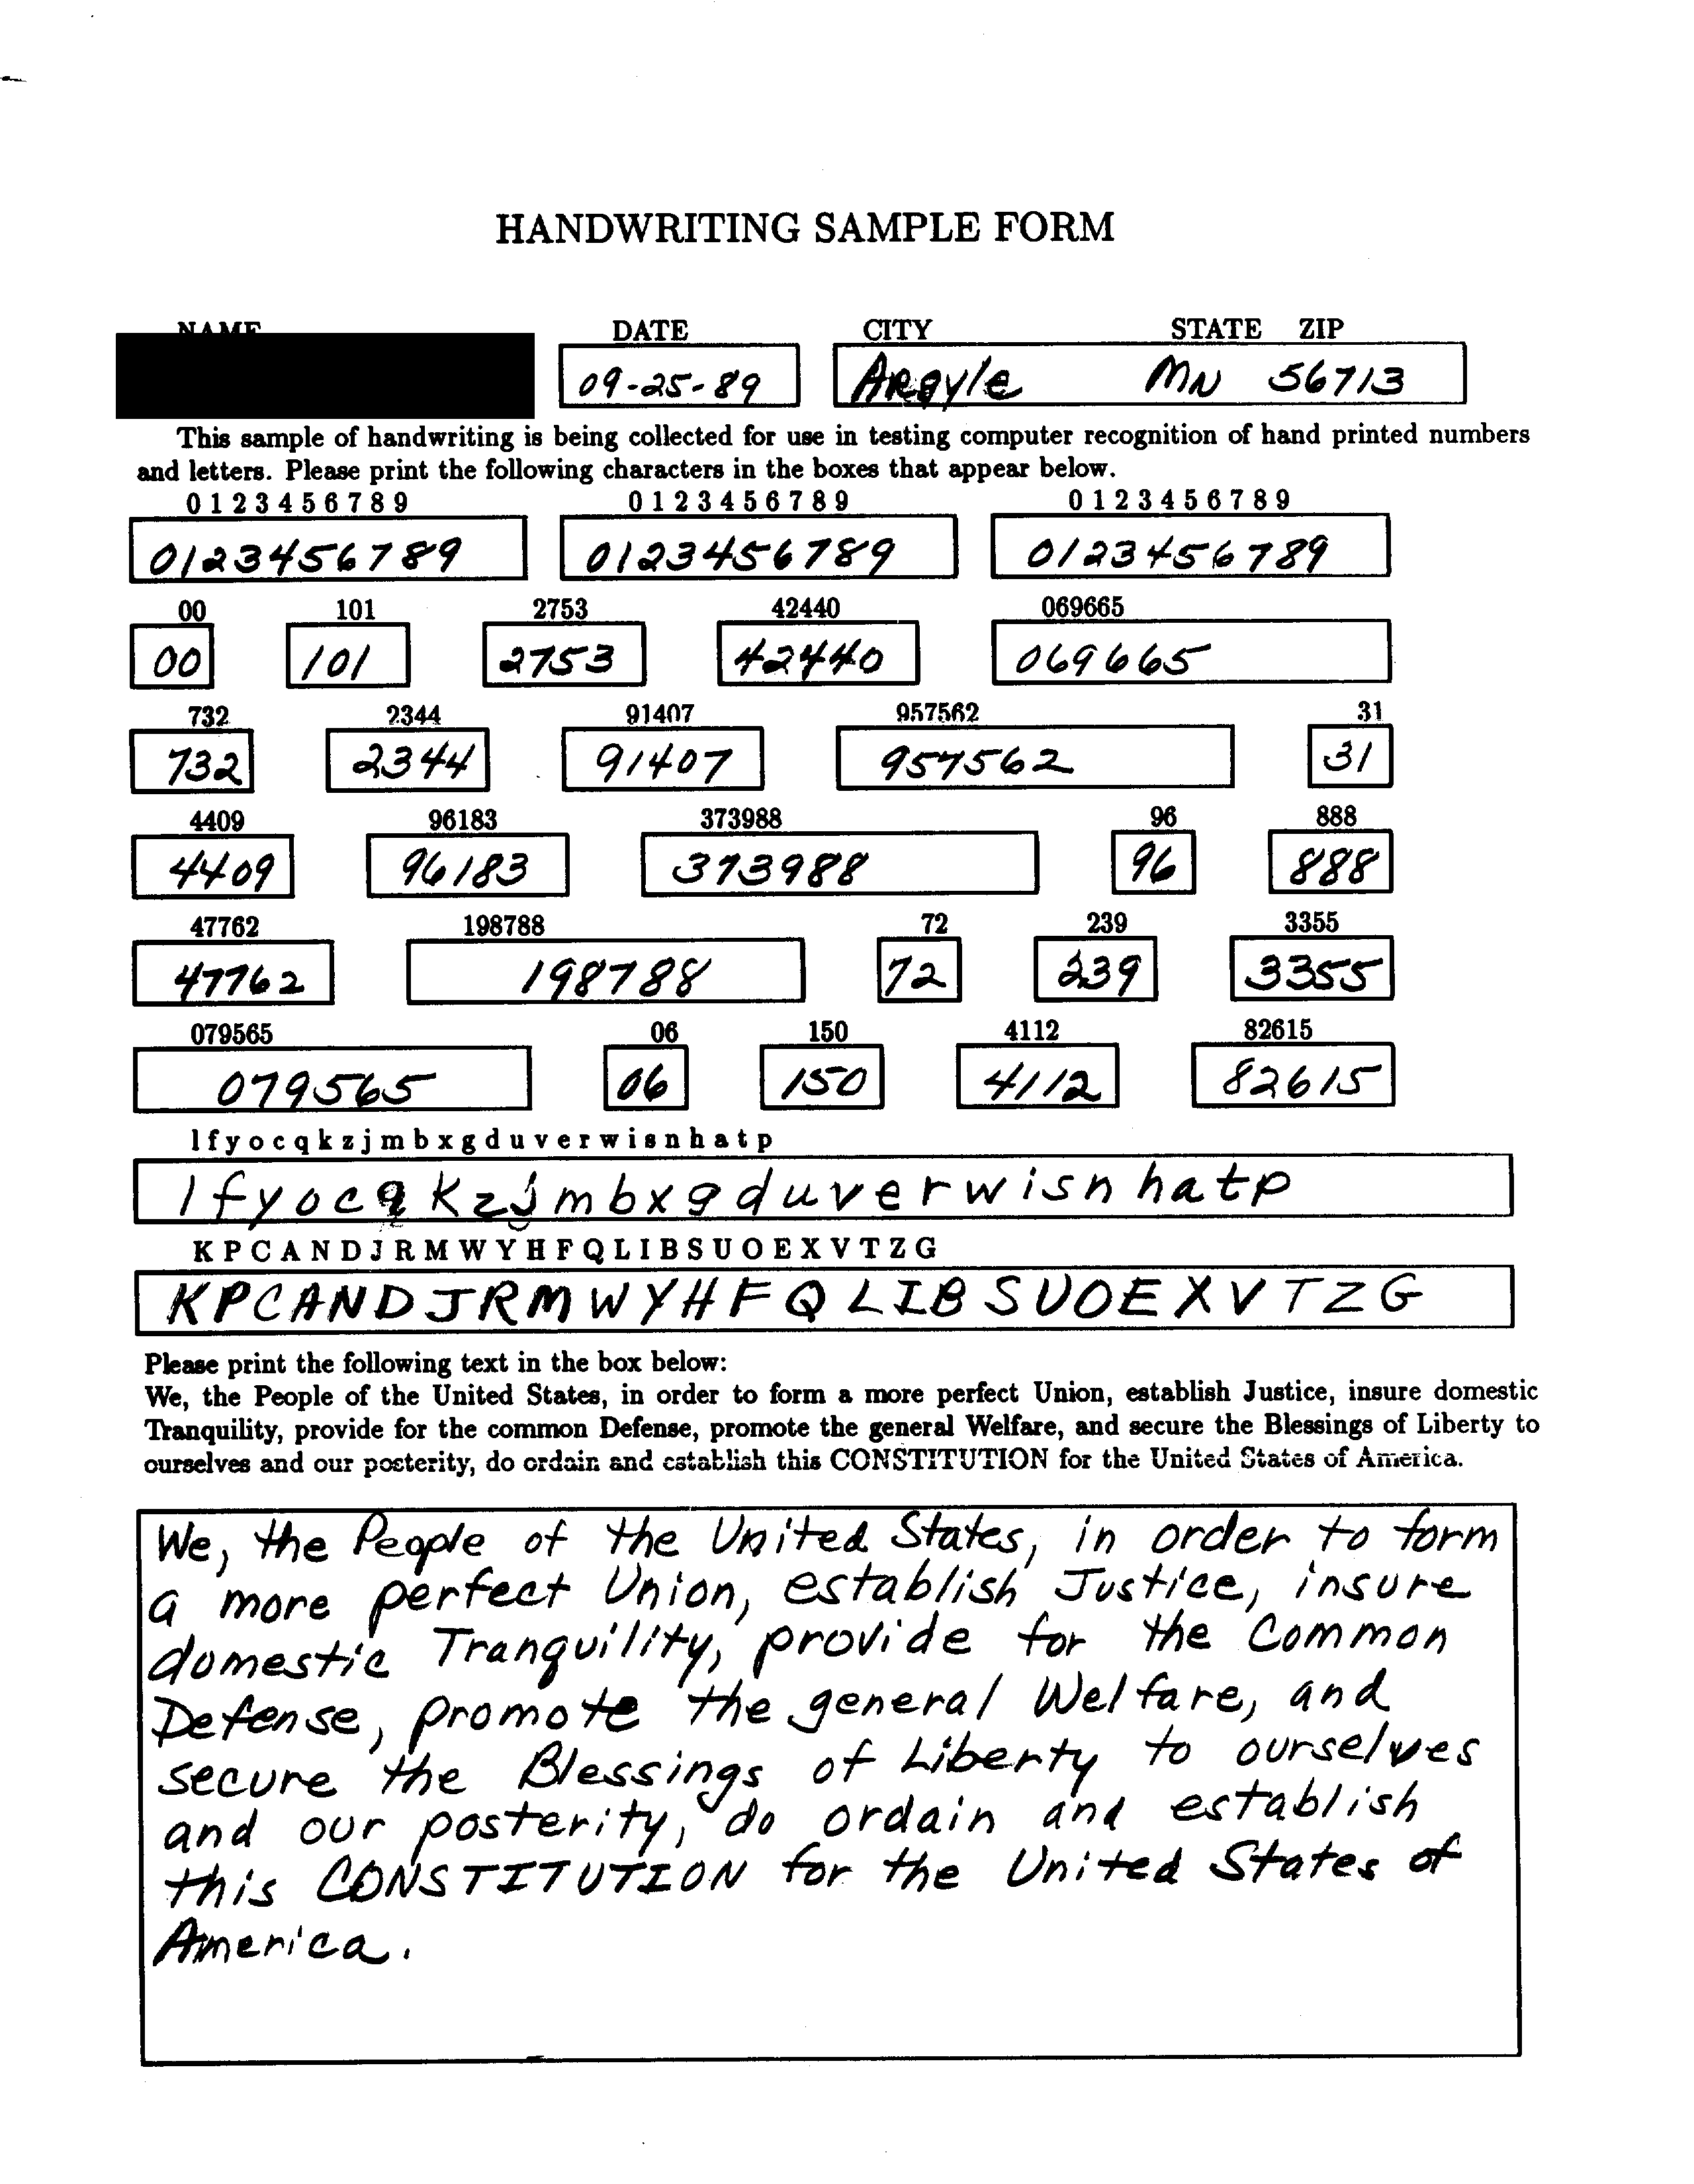 HANDWRITING SAMPLE FORM
NAME DATE CITY STATE ZIP
09-25-89 Argyle MN 56713
This sample of handwriting is being collected for use in testing computer recognition of hand printed numbers
and letters. Please print the following characters in the boxes that appear below.
0 1 2 3 4 5 6 7 8 9 0 1 2 3 4 5 6 7 8 9 0 1 2 3 4 5 6 7 8 9
0123456789 0123456789 0123456789
00 101 2753 42440 069665
00 101 2753 42440 069665
732 2344 91407 957562 31
732 2344 91407 957562 31
4409 96183 373988 96 888
4409 96183 373988 96 888
47762 198788 72 239 3355
47762 198788 72 239 3355
079565 06 150 4112 82615
079565 06 150 4112 82615
l f y o c q k z j m b x g d u v e r w i s n h a t p
l f y o c q k z j m b x g d u v e r w i s n h a t p
K P C A N D J R M W Y H F Q L I B S U O E X V T Z G
K P C A N D J R M W Y H F Q L I B S U O E X V T Z G
Please print the following text in the box below:
We, the People of the United States, in order to form a more perfect Union, establish Justice, insure domestic
Tranquility, provide for the common Defense, promote the general Welfare, and secure the Blessings of Liberty to
ourselves and our posterity, do ordain and establish this CONSTITUTION for the United States of America.
We, the People of the United States, in order to form
a more perfect Union, establish Justice, insure
domestic Tranquility, provide for the Common
Defense, promote the general Welfare, and
secure the Blessings of Liberty to ourselves
and our posterity, do ordain and establish
this CONSTITUTION for the United States of
America.